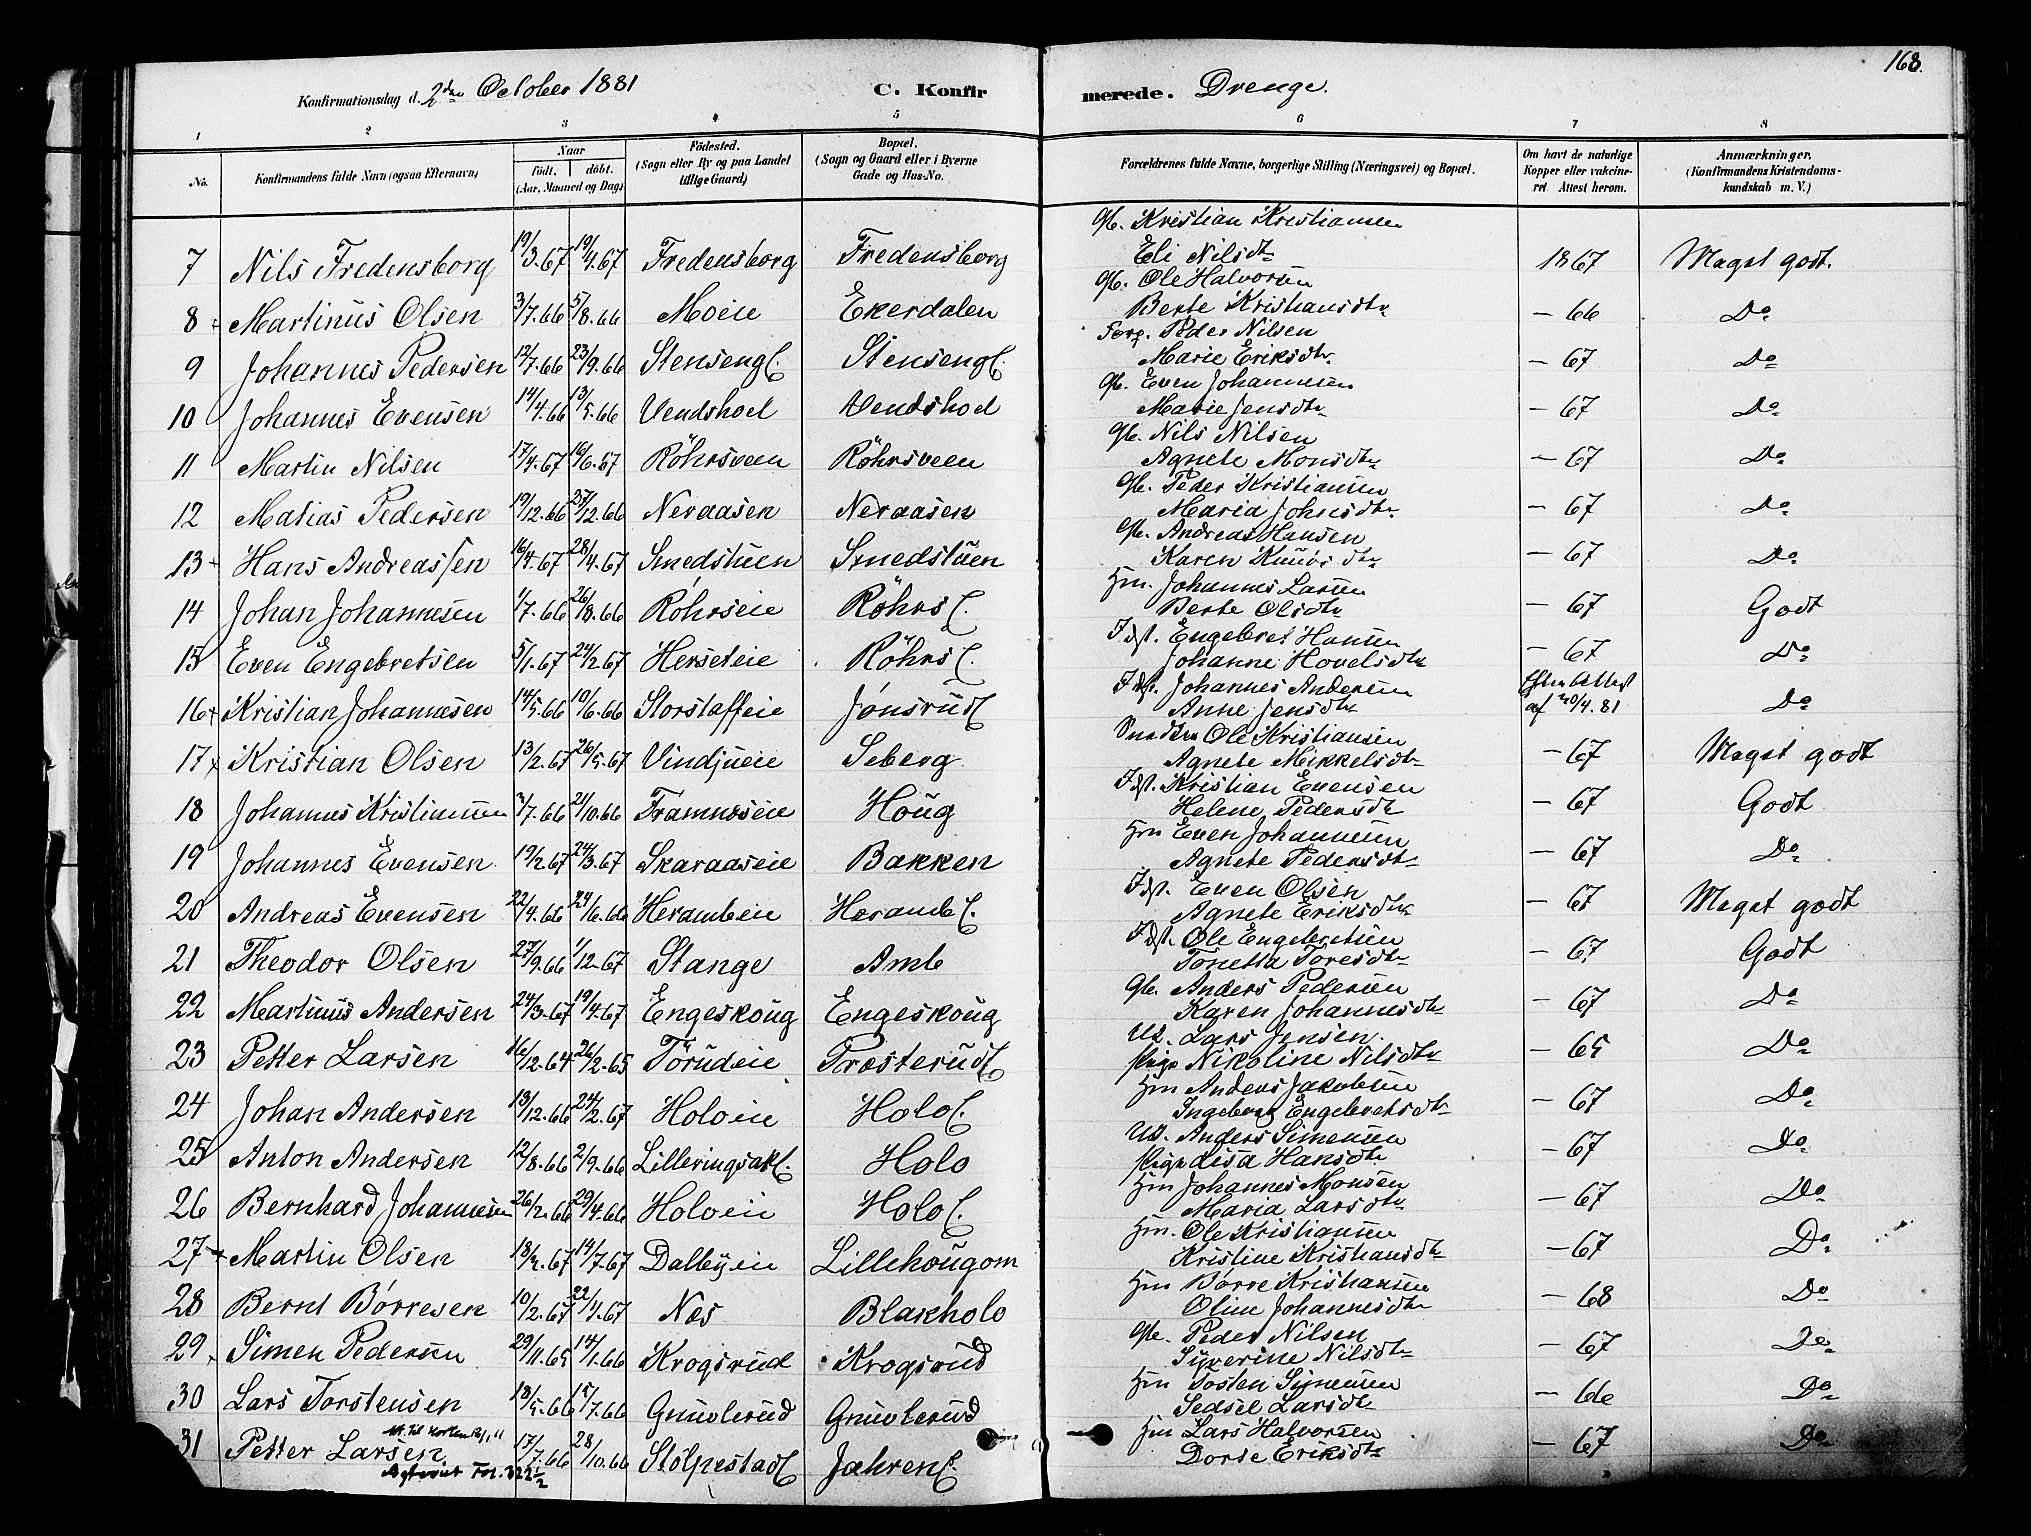 168.
Konfirmationsdag d. 2den October 1881 C. Konfirmerede. Drenge.
1 2 3 4 5 6 7 8
No. Konfirmandens fulde Navn (ogsaa Efternavn). Naar født. døbt. (Aar, Maaned og Dag) Födested. (Sogn eller By og paa Landet tillige Gaard) Bopæl. (Sogn og Gaard eller i Byerne Gade og Hus-No. Forældrenes fulde Navne, borgerlige Stilling (Næringsvei) og Bopæl. Om havt de naturlige Kopper eller vakcineret. Attest herom. Anmærkninger. (Konfirmandens Kristendomskundskab m. V.)
Gb. Kristian Kristiansen
7 Nils Fredensborg 19/3.67 19/4.67 Fredensborg Fredensborg Eli Nilsdtr 1867 Meget godt.
Gb. Ole Halvorsen
8 Martinus Olsen 3/7.66 5/8.66 Moeie Ekerdalen Berte Kristiansdtr - 66 Do
Forp. Peder Nilsen
9 Johannes Pedersen 12/7.66 23/9.66 Stensengl. Stensengl. Marie Eriksdtr - 67 Do
Gb. Even Johannesen
10 Johannes Evensen 14/4.66 13/5.66 Vendshoel Vendshoel Marie Jensdtr - 67 Do
Gb. Nils Nilsen
11 Martin Nilsen 17/4.67 16/6.67 Röhrsveen Röhrsveen Agnete Monsdtr - 67 Do
Gb. Peder Kristiansen
12 Matias Pedersen 19/12.66 27/12.66 Neraasen Neraasen Maria Johnsdtr - 67 Do
Gb. Andreas Hansen
13 Hans Andreassen 16/4.67 28/4.67 Smedstuen Smedstuen Karen - 67 Do
Hm. Johannes Larsen
14 Johan Johannesen 1/7.66 26/8.66 Röhrseie Röhrs l. Berte Olsdtr - 67 Godt
Idst. Engebret Hansen
15 Even Engebretsen 5/1.67 24/2.67 Herseteie Röhrs l. Johanne Hovelsdtr - 67 Do
Idst. Johannes Andersen
16 Kristian Johannesen 14/5.66 10/6.66 Storstaffeie Jonsrudl Anne Jensdtr Efter Attest af 20/4.81 Do
Ole Kristiansen
17 Kristian Olsen 13/2.67 26/5.67 Vindjueie Seberg Agnete Mikkelsdtr - 67 Meget godt
Idst. Kristian Evensen
18 Johannes Kristiansen 2/7.66 21/10.66 Framnæseie Houg Helene Pedersdtr - 67 Godt
Hm Even Johannesen
19 Johannes Evensen 19/2.67 24/3.67 Skaraaseie Bakken Agnete Pedersdtr - 67 Do
Idst. Even Olsen
20 Andreas Evensen 22/4.66 24/6.66 Herambeie Herambl. Agnete Eriksdtr - 67 Meget godt
Idst. Ole Engebretsen
21 Theodor Olsen 27/9.66 1/12.67 Stange Amb Tonetta Toresdtr - 67 Godt
Gb. Anders Pedersen
22 Martinus Andersen 24/3.67 19/4.67 Engeskoug Engeskoug Karen Johannesdtr - 67 Do
Us. Lars Jensen.
23 Petter Larsen 16/12.64 26/2.65 Törudeie Trosterudl. Pige Nikoline Nilsdtr - 65 Do
Hm Anders Jakobsen
24 Johan Andersen 13/12.66 24/2.67 Holoeie Holol. Ingeborg Engebretsdtr - 67 Do
Us. Anders Simensen
25 Anton Andersen 12/8.66 2/9.66 Lilleringsakl. Holo Pige Lisa Hansdtr - 67 Do
Hm Johannes Monsen
26 Bernhard Johannesen 26/2.66 29/4.66 Holoeie Holol. Maria Larsdtr - 67 Do
Hm. Ole Kristiansen
27 Martin Olsen 14/7.67 Dalbyeie Lillehougom Kristine Kristiansdtr - 67 Do
Hm Börre Kristiansen
28 Bernt Börresen 10/2.67 22/4.67 Nes Blakholo Oline Johannesdtr - 68 Do
Gb. Peder Nilsen
29 Simen Pedersen 29/11.65 14/1.66 Krogsrud Krogsrud Syverine Nilsdtr - 67 Do
Hm Tosten Simensen
30 Lars Torstensen 18/5.66 15/7.66 Gnuvlerud Gnuvlerud Sedsel Larsdtr - 66 Do
Hm Lars Halvorsen
31 Petter Larsen 17/7.66 28/10.66 Stolpestadl Jahrenl. Dorte Eriksdtr - 67 Do